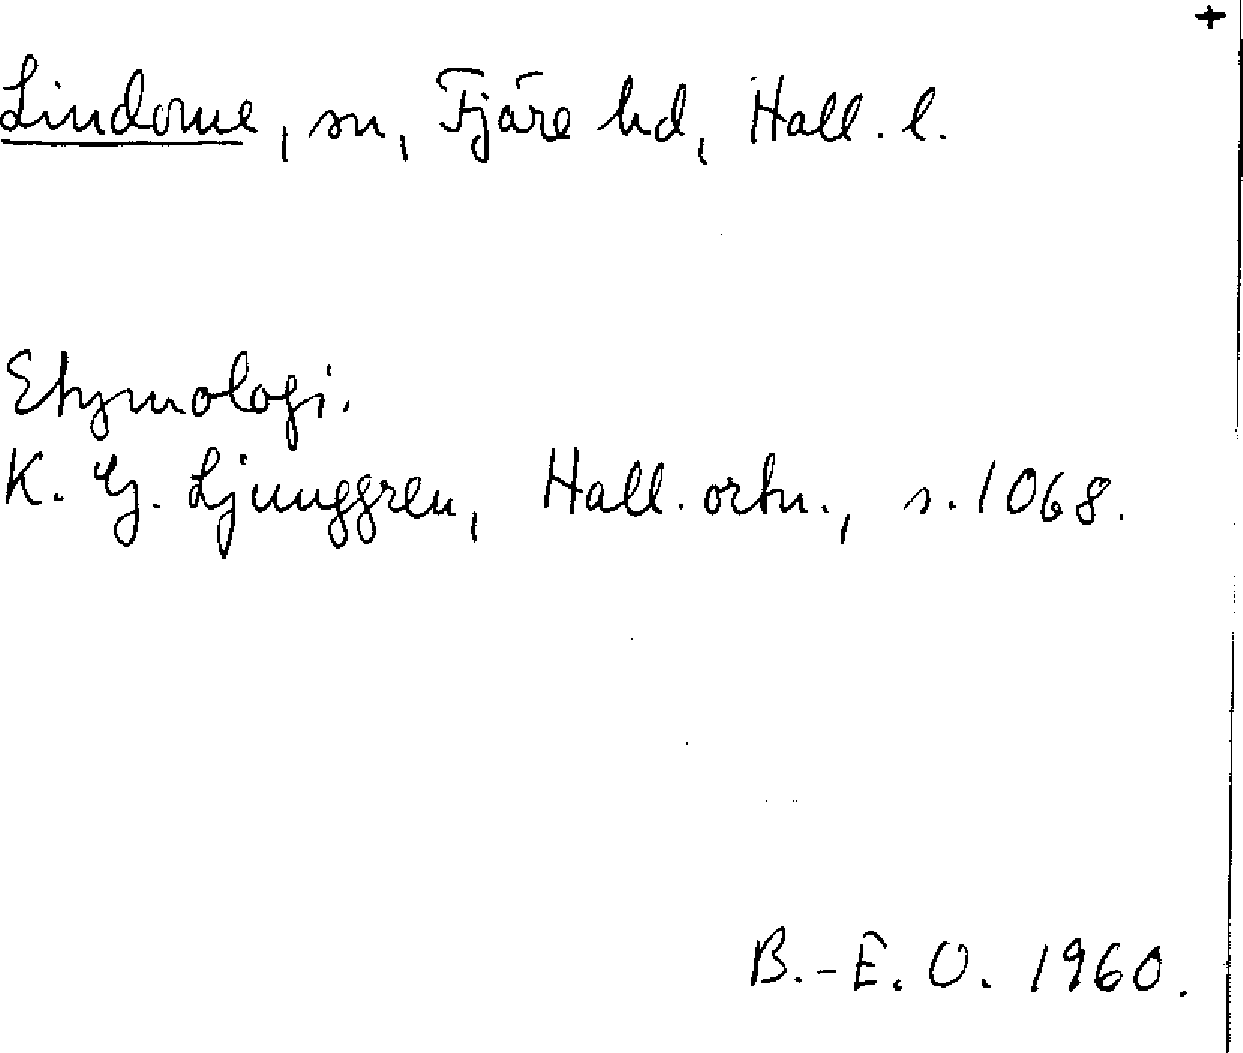 +
Lindome, sn, Fjäre hd, Hall. l.
Etymologi.
K. G. Ljunggren, Hall. ortn., s. 1068.
B.-E. O. 1960.